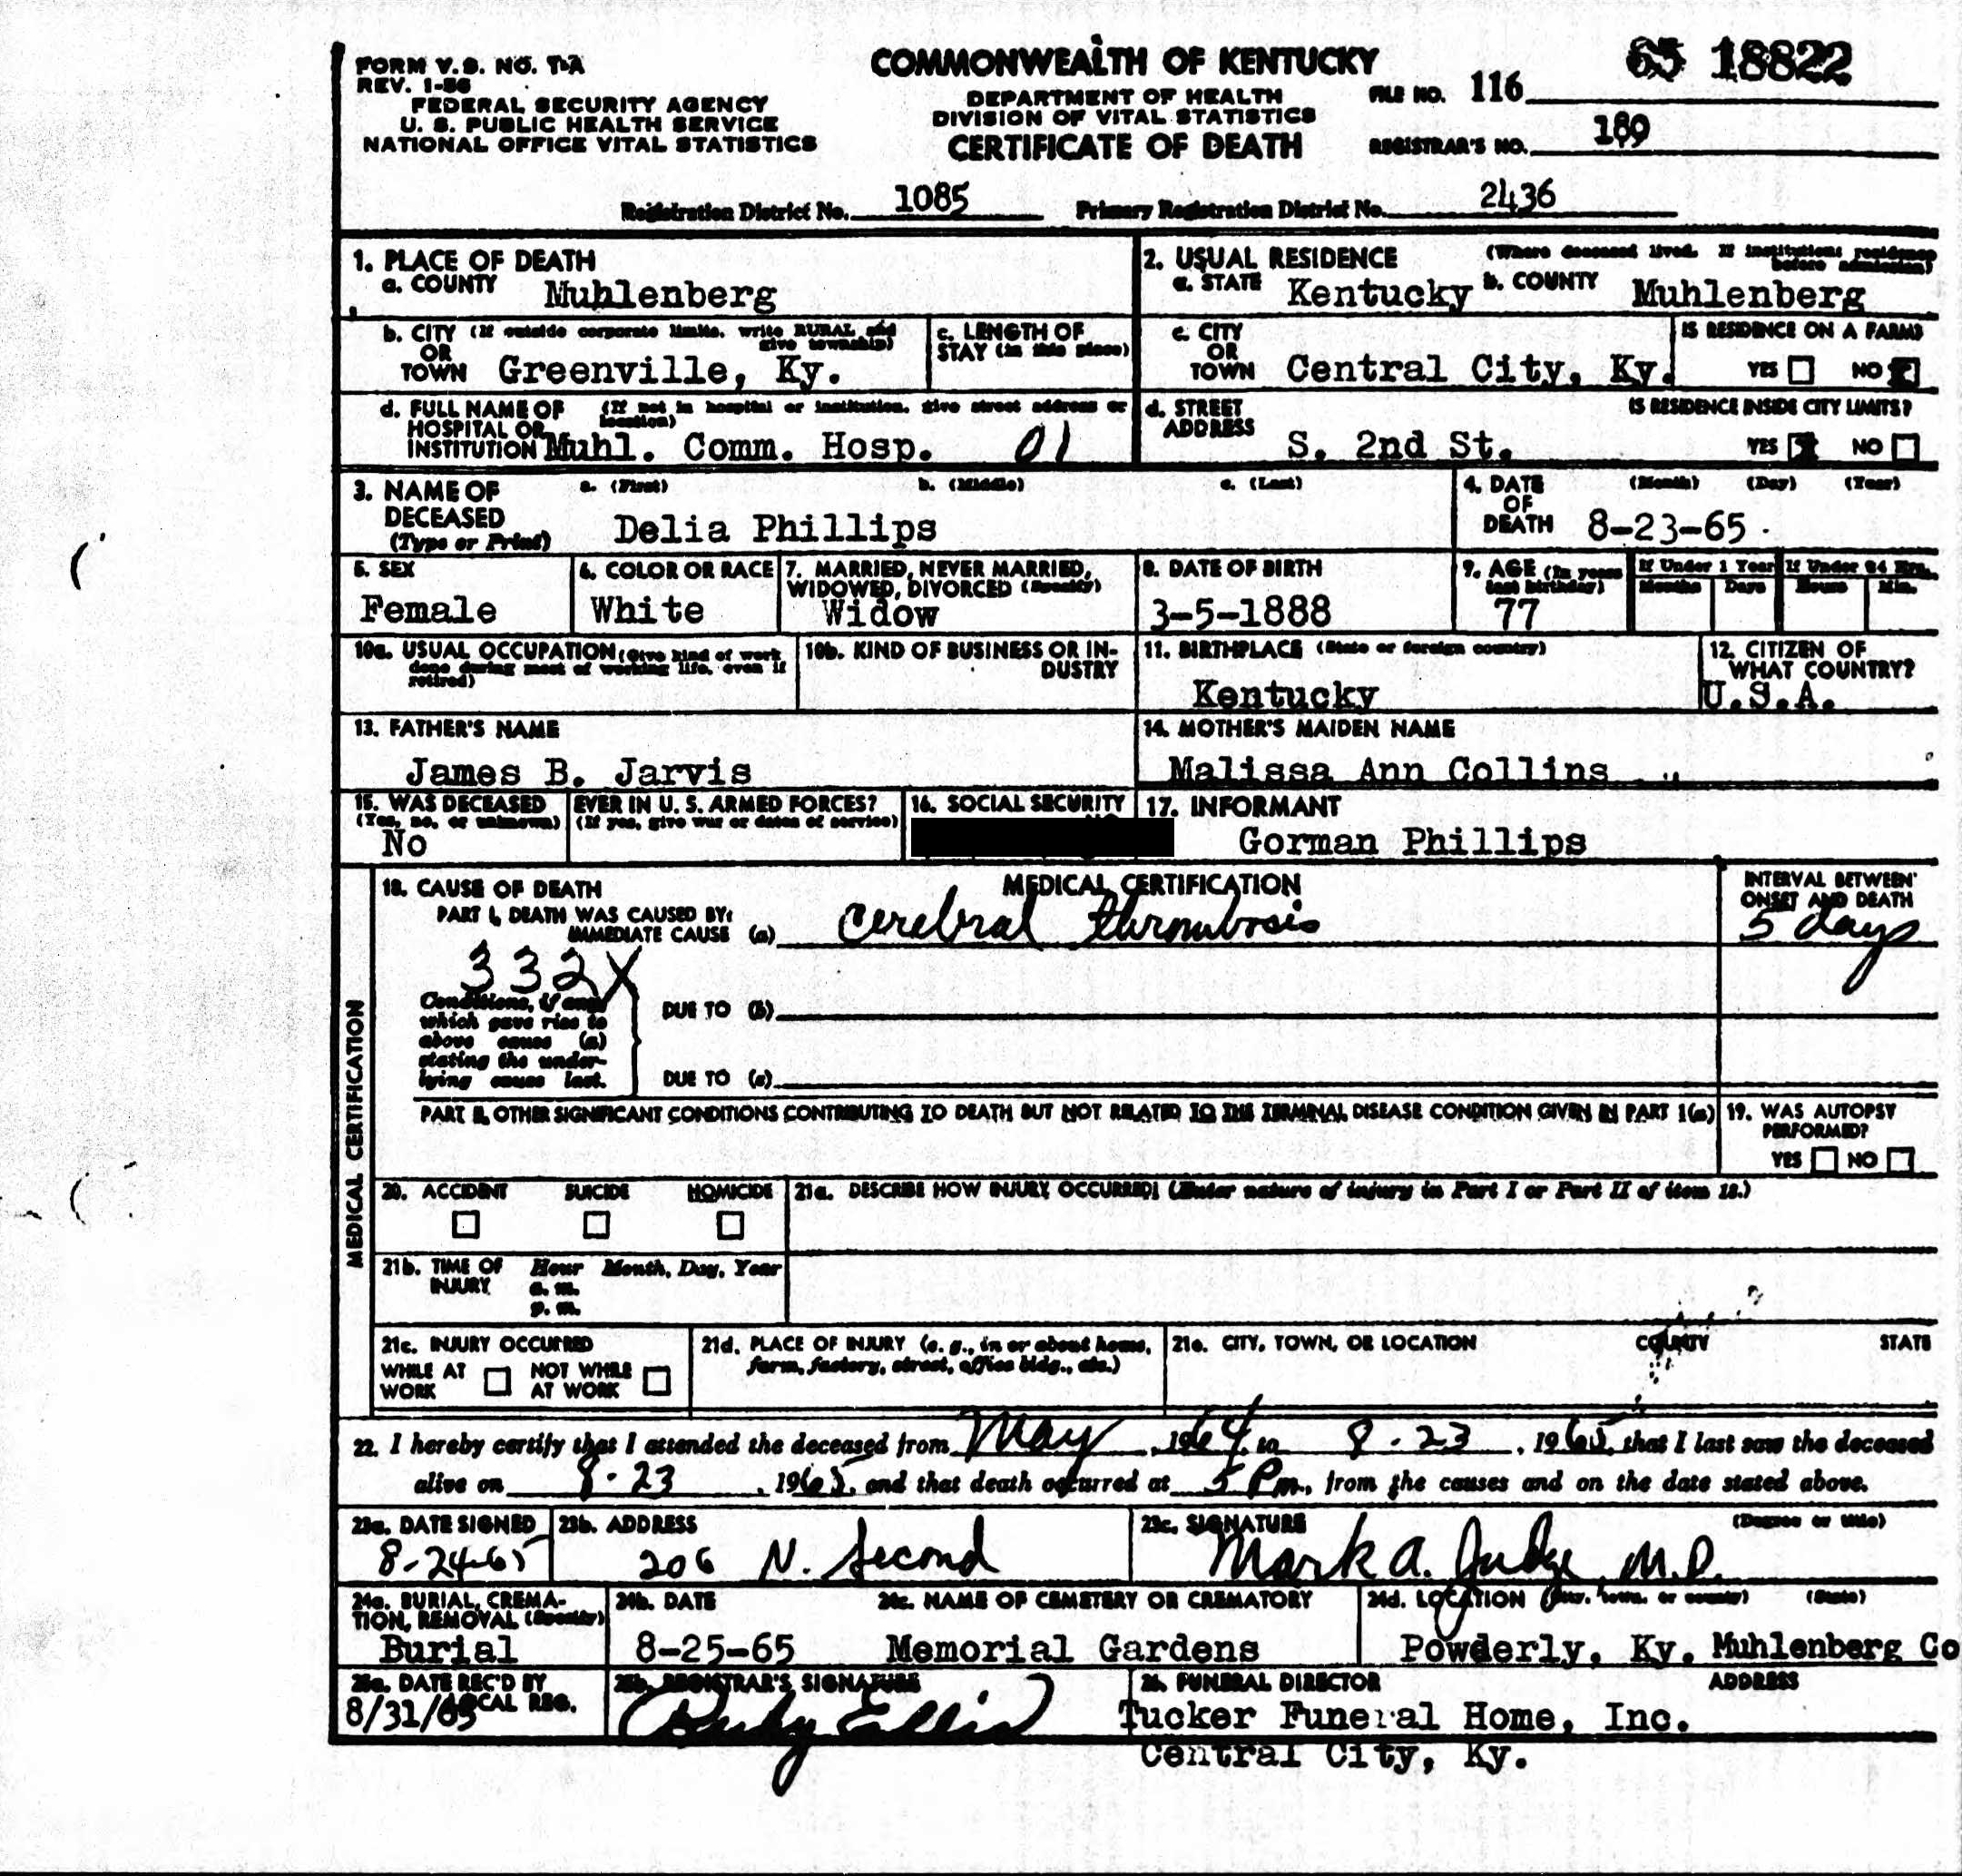 FORM V.S. NO. 1-A
REV. 1-56
FEDERAL SECURITY AGENCY
U. S. PUBLIC HEALTH SERVICE
NATIONAL OFFICE VITAL STATISTICS
COMMONWEALTH OF KENTUCKY
DEPARTMENT OF HEALTH
DIVISION OF VITAL STATISTICS
CERTIFICATE OF DEATH
65 18822
FILE NO. 116
REGISTRAR'S NO. 189
Registration District No. 1085 Primary Registration District No. 2436
1. PLACE OF DEATH
a. COUNTY Muhlenberg
2. USUAL RESIDENCE (Where deceased lived. If institution: residence before admission)
a. STATE Kentucky b. COUNTY Muhlenberg
b. CITY (If outside corporate limits, write RURAL and give township)
OR
TOWN Greenville, Ky.
c. LENGTH OF
STAY (in this place)
c. CITY
OR
TOWN Central City, Ky.
IS RESIDENCE ON A FARM?
YES NO
d. FULL NAME OF (If not in hospital or institution, give street address or location)
HOSPITAL OR
INSTITUTION Muhl. Comm. Hosp. 01
d. STREET
ADDRESS S. 2nd St.
IS RESIDENCE INSIDE CITY LIMITS?
YES NO
3. NAME OF
DECEASED
(Type or Print)
a. (First) b. (Middle) c. (Last)
Delia Phillips
4. DATE
OF
DEATH
(Month) (Day) (Year)
8-23-65
5. SEX
Female
6. COLOR OR RACE
White
7. MARRIED, NEVER MARRIED,
WIDOWED, DIVORCED (Specify)
Widow
8. DATE OF BIRTH
3-5-1888
9. AGE (In years
last birthday)
77
If Under 1 Year
Months Days
If Under 24 Hrs.
Hours Min.
10a. USUAL OCCUPATION (Give kind of work
done during most of working life, even if
retired)
10b. KIND OF BUSINESS OR IN-
DUSTRY
11. BIRTHPLACE (State or foreign country)
Kentucky
12. CITIZEN OF
WHAT COUNTRY?
U.S.A.
13. FATHER'S NAME
James B. Jarvis
14. MOTHER'S MAIDEN NAME
Malissa Ann Collins
15. WAS DECEASED EVER IN U. S. ARMED FORCES?
(Yes, no, or unknown) (If yes, give war or dates of service)
No
16. SOCIAL SECURITY
17. INFORMANT
Gorman Phillips
MEDICAL CERTIFICATION
18. CAUSE OF DEATH
MEDICAL CERTIFICATION
INTERVAL BETWEEN
ONSET AND DEATH
PART I. DEATH WAS CAUSED BY:
IMMEDIATE CAUSE (a) cerebral thrombosis 5 days
332X
Conditions, if any
which gave rise to
above cause (a)
stating the under-
lying cause last.
DUE TO (b)
DUE TO (c)
PART II. OTHER SIGNIFICANT CONDITIONS CONTRIBUTING TO DEATH BUT NOT RELATED TO THE TERMINAL DISEASE CONDITION GIVEN IN PART I(a)
19. WAS AUTOPSY
PERFORMED?
YES NO
20. ACCIDENT SUICIDE HOMICIDE
21a. DESCRIBE HOW INJURY OCCURRED! (Enter nature of injury in Part I or Part II of item 18.)
21b. TIME OF
INJURY
Hour Month, Day, Year
a. m.
p. m.
21c. INJURY OCCURRED
WHILE AT
WORK
NOT WHILE
AT WORK
21d. PLACE OF INJURY (e. g., in or about home,
farm, factory, street, office bldg., etc.)
21e. CITY, TOWN, OR LOCATION COUNTY STATE
22. I hereby certify that I attended the deceased from May, 1964, to 8-23, 1965, that I last saw the deceased
alive on 8-23, 1965, and that death occurred at 5 Pm., from the causes and on the date stated above.
23a. DATE SIGNED
8-24-65
23b. ADDRESS
206 N. Second
23c. SIGNATURE (Degree or title)
Mark A. Judge M.D.
24a. BURIAL, CREMA-
TION, REMOVAL (Specify)
Burial
24b. DATE
8-25-65
24c. NAME OF CEMETERY OR CREMATORY
Memorial Gardens
24d. LOCATION (City, town, or county) (State)
Powderly, Ky. Muhlenberg Co
25a. DATE REC'D BY
LOCAL REG.
8/31/65
25b. REGISTRAR'S SIGNATURE
Ruby Ellis
26. FUNERAL DIRECTOR ADDRESS
Tucker Funeral Home, Inc.
Central City, Ky.